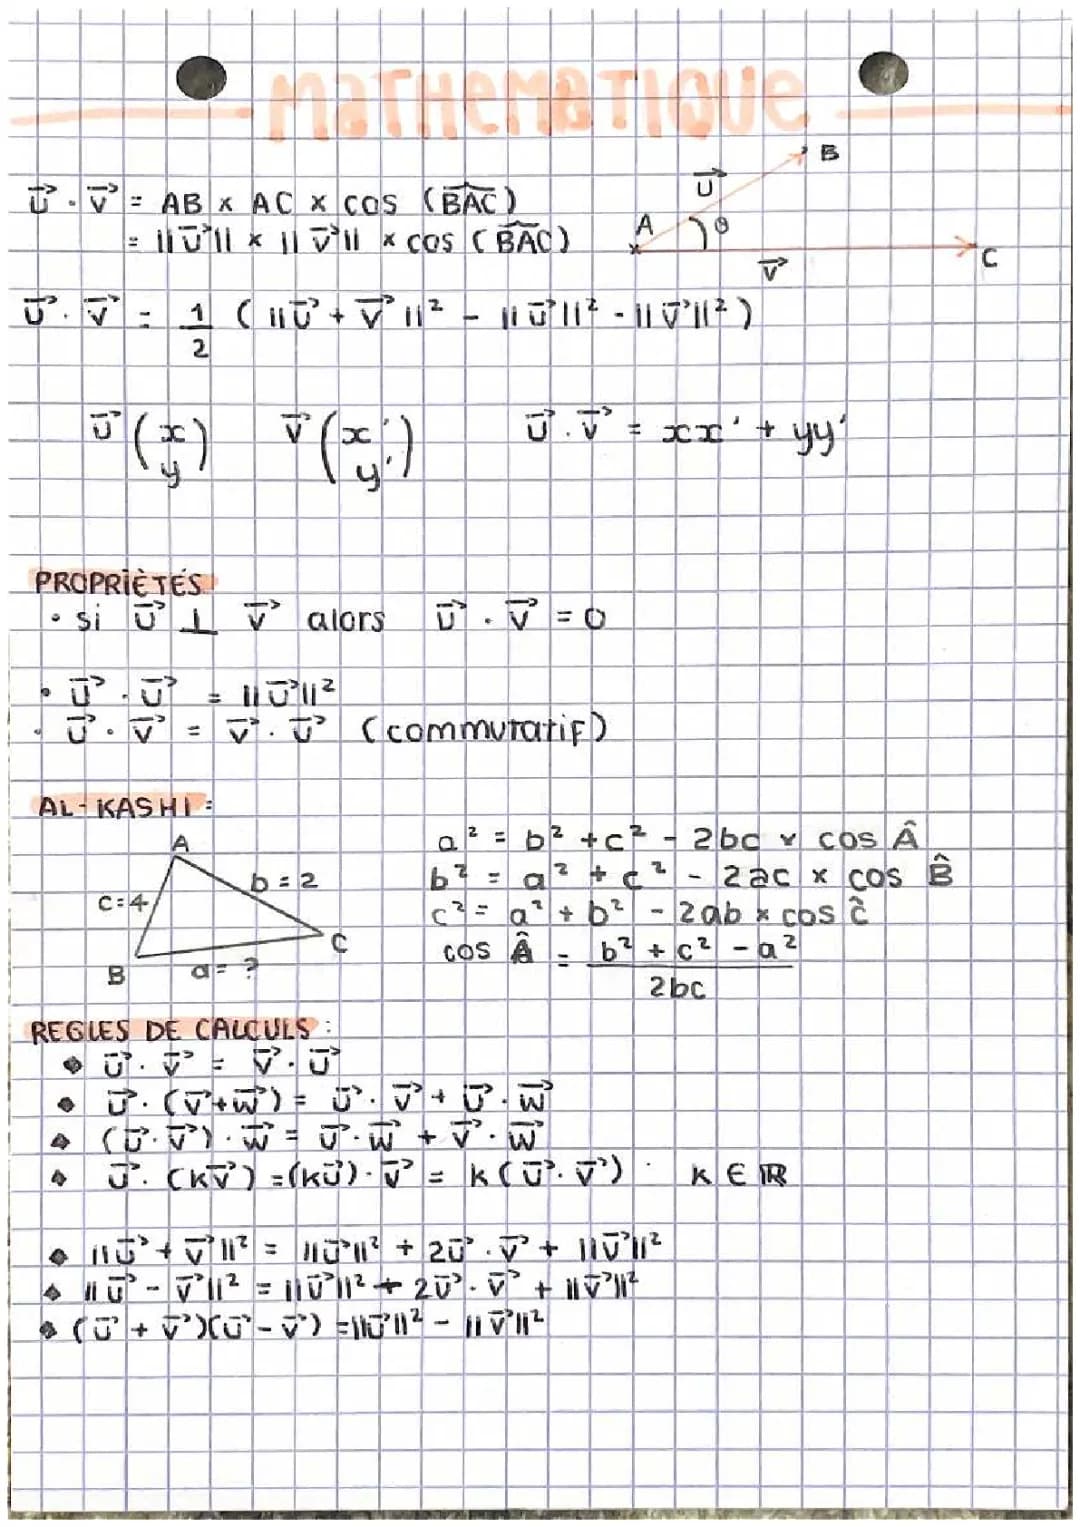 MATHEMATIQUE
B
u⃗
u⃗ . v⃗ = AB x AC x cos (BAC)
A θ
= ||u⃗|| x || v⃗|| x cos (BAC)
C
v⃗
u⃗ . v⃗ = 1/2 ( ||u⃗ + v⃗ ||² - || u⃗ ||² - || v⃗||² )
u⃗ (x y) v⃗ (x' y') u⃗ . v⃗ = xx' + yy'
PROPRIÈTÉS
• si u⃗ ⊥ v⃗ alors u⃗ . v⃗ = 0
• u⃗ . u⃗ = || u⃗ ||²
• u⃗ . v⃗ = v⃗ . u⃗ (commutatif)
AL-KASHI :
A
b = 2
c = 4
C
B
a = ?
a² = b² + c² - 2bc x cos Â
b² = a² + c² - 2ac x cos B̂
c² = a² + b² - 2ab x cos Ĉ
cos Â = b² + c² - a² / 2bc
REGLES DE CALCULS :
◆ u⃗ . v⃗ = v⃗ . u⃗
◆ u⃗ . (v⃗ + w⃗) = u⃗ . v⃗ + u⃗ . w⃗
◆ (u⃗ . v⃗) . w⃗ = u⃗ . w⃗ + v⃗ . w⃗
◆ u⃗ . (kv⃗) = (ku⃗) . v⃗ = k ( u⃗ . v⃗ ) k ∈ ℝ
◆ || u⃗ + v⃗ ||² = || u⃗ ||² + 2u⃗ . v⃗ + || v⃗ ||²
◆ || u⃗ - v⃗ ||² = || u⃗ ||² + 2u⃗ . v⃗ + || v⃗ ||²
◆ (u⃗ + v⃗)(u⃗ - v⃗) = || u⃗ ||² - || v⃗ ||²